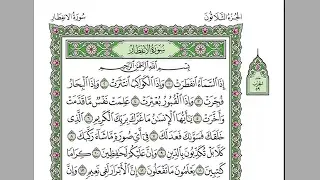 سُورَةُ الانفِطَارِ
الجُزْءُ الثَّلَاثُونَ
سُورَةُ الانفِطَارِ
بِسْمِ اللَّهِ الرَّحْمَٰنِ الرَّحِيمِ
إِذَا السَّمَاءُ انفَطَرَتْ ۝ وَإِذَا الْكَوَاكِبُ انتَثَرَتْ ۝ وَإِذَا الْبِحَارُ
فُجِّرَتْ ۝ وَإِذَا الْقُبُورُ بُعْثِرَتْ ۝ عَلِمَتْ نَفْسٌ مَّا قَدَّمَتْ
وَأَخَّرَتْ ۝ يَا أَيُّهَا الْإِنسَانُ مَا غَرَّكَ بِرَبِّكَ الْكَرِيمِ ۝ الَّذِي
خَلَقَكَ فَسَوَّاكَ فَعَدَلَكَ ۝ فِي أَيِّ صُورَةٍ مَّا شَاءَ رَكَّبَكَ ۝
كَلَّا بَلْ تُكَذِّبُونَ بِالدِّينِ ۝ وَإِنَّ عَلَيْكُمْ لَحَافِظِينَ ۝ كِرَامًا
كَاتِبِينَ ۝ يَعْلَمُونَ مَا تَفْعَلُونَ ۝ إِنَّ الْأَبْرَارَ لَفِي نَعِيمٍ ۝ وَإِنَّ